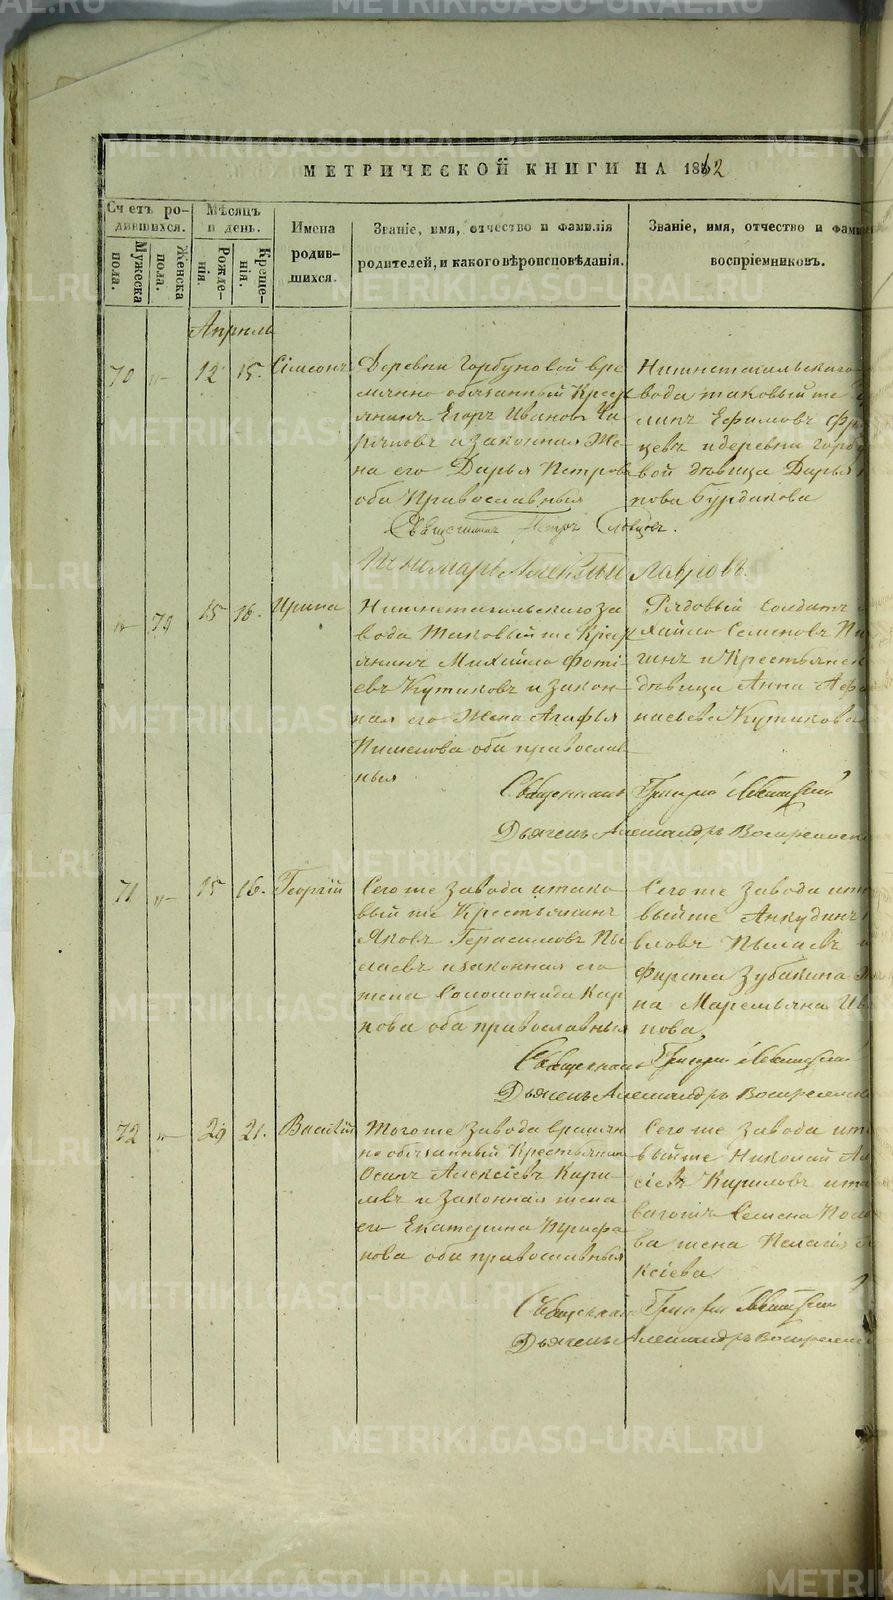 METRIKI.GASO-URAL.RU
МЕТРИЧЕСКОЙ КНИГИ НА 1862
Счетъ ро-
дившихся.
Мужеска
пола.
Женска
пола.
Мѣсяцъ
и день.
Рожде-
нія.
Креще-
нія.
Имена
родив-
шихся.
Званіе, имя, отчество и фамилія
родителей, и какого вѣроисповѣданія.
Званіе, имя, отчество и фами
воспріемниковъ.
Апрѣль
70 12 15. Сімеонъ
Деревни Горбуновой вре
менно обязанный Крест
янинъ Егоръ Ивановъ
и законная Же
на его Дарья Петрова
оба Православныя
Нижнетагильскаго
вода таковый же
Ефимовъ
цевъ и деревни Горбу
вой дѣвица Дарья
нова Бурдакова
Священникъ Петръ
Пономарь Лавровъ.
79 15 16. Ирина
Нижнетагильскаго за
вода Таковый же Крест
янинъ Михайло Фоті
евъ Кутиковъ и закон
ная его Жена Агафья
Пименова оба православ
ныя
Рядовый Солдатъ
хайло Семеновъ
гинъ и Крестьянск
дѣвица Анна Афа
насьева Кутикова
Священникъ Григорій
Дьяченъ Александръ Воскресенск
71 15 16. Георгій
Сегоже завода и тако
вый же Крестьянинъ
Яковъ Герасимовъ Пы
лаевъ и законная его
жена Соломонида Кар
пова оба православныя
Сегоже завода и та
выйже Анкудинъ
вловъ Пылаевъ
Фирста Зубакина
на Маремьяна Ив
нова
Священникъ Григорій
Дьяченъ Александръ Воскресенск
72 21. Василій
Тогоже завода временно
но обязанный Крестьянинъ
Осипъ Алексіевъ Кири
ловъ и Законная жена
его Екатерина
нова оба православныя
Сегоже завода и та
выйже Николай Ал
сіевъ Кириловъ и та
вагожъ Семена
ва жена Пелагія
ксіева
Священникъ Григорій
Дьяченъ Александръ Воскресенск